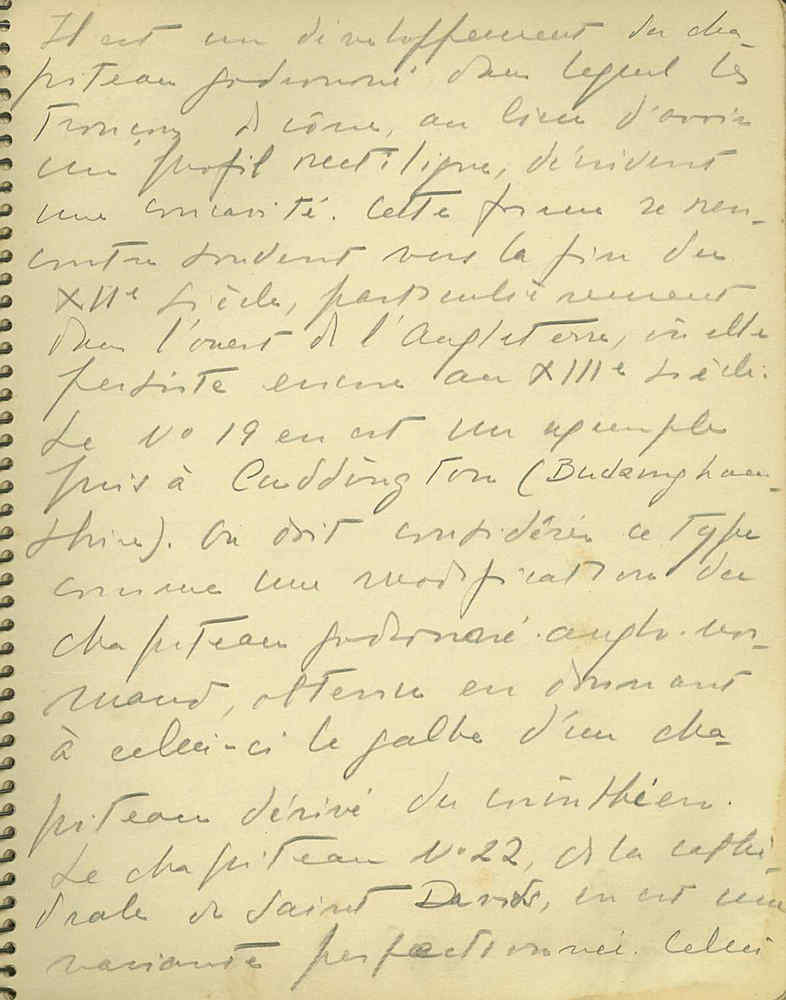 Il est un développement du cha-
piteau godronné dans lequel les
tronçons de cône, au lieu d'avoir
un profil rectiligne, dénivent
une concavité. Cette forme se ren-
contre souvent vers la fin du
XIIe siècle, particulièrement
dans l'ouest de l'Angleterre, où elle
persiste encore au XIIIe siècle.
Le No 19 en est un exemple
pris à Cuddington (Buckingham-
shire). On doit considérer ce type
comme une modification du
chapiteau godronné anglo-nor-
mand, obtenu en donnant
à celui-ci le galbe d'un cha-
piteau dérivé du corinthien.
Le chapiteau No 22, de la cathé-
drale de Saint Davids, en est une
variante perfectionnée. Celui